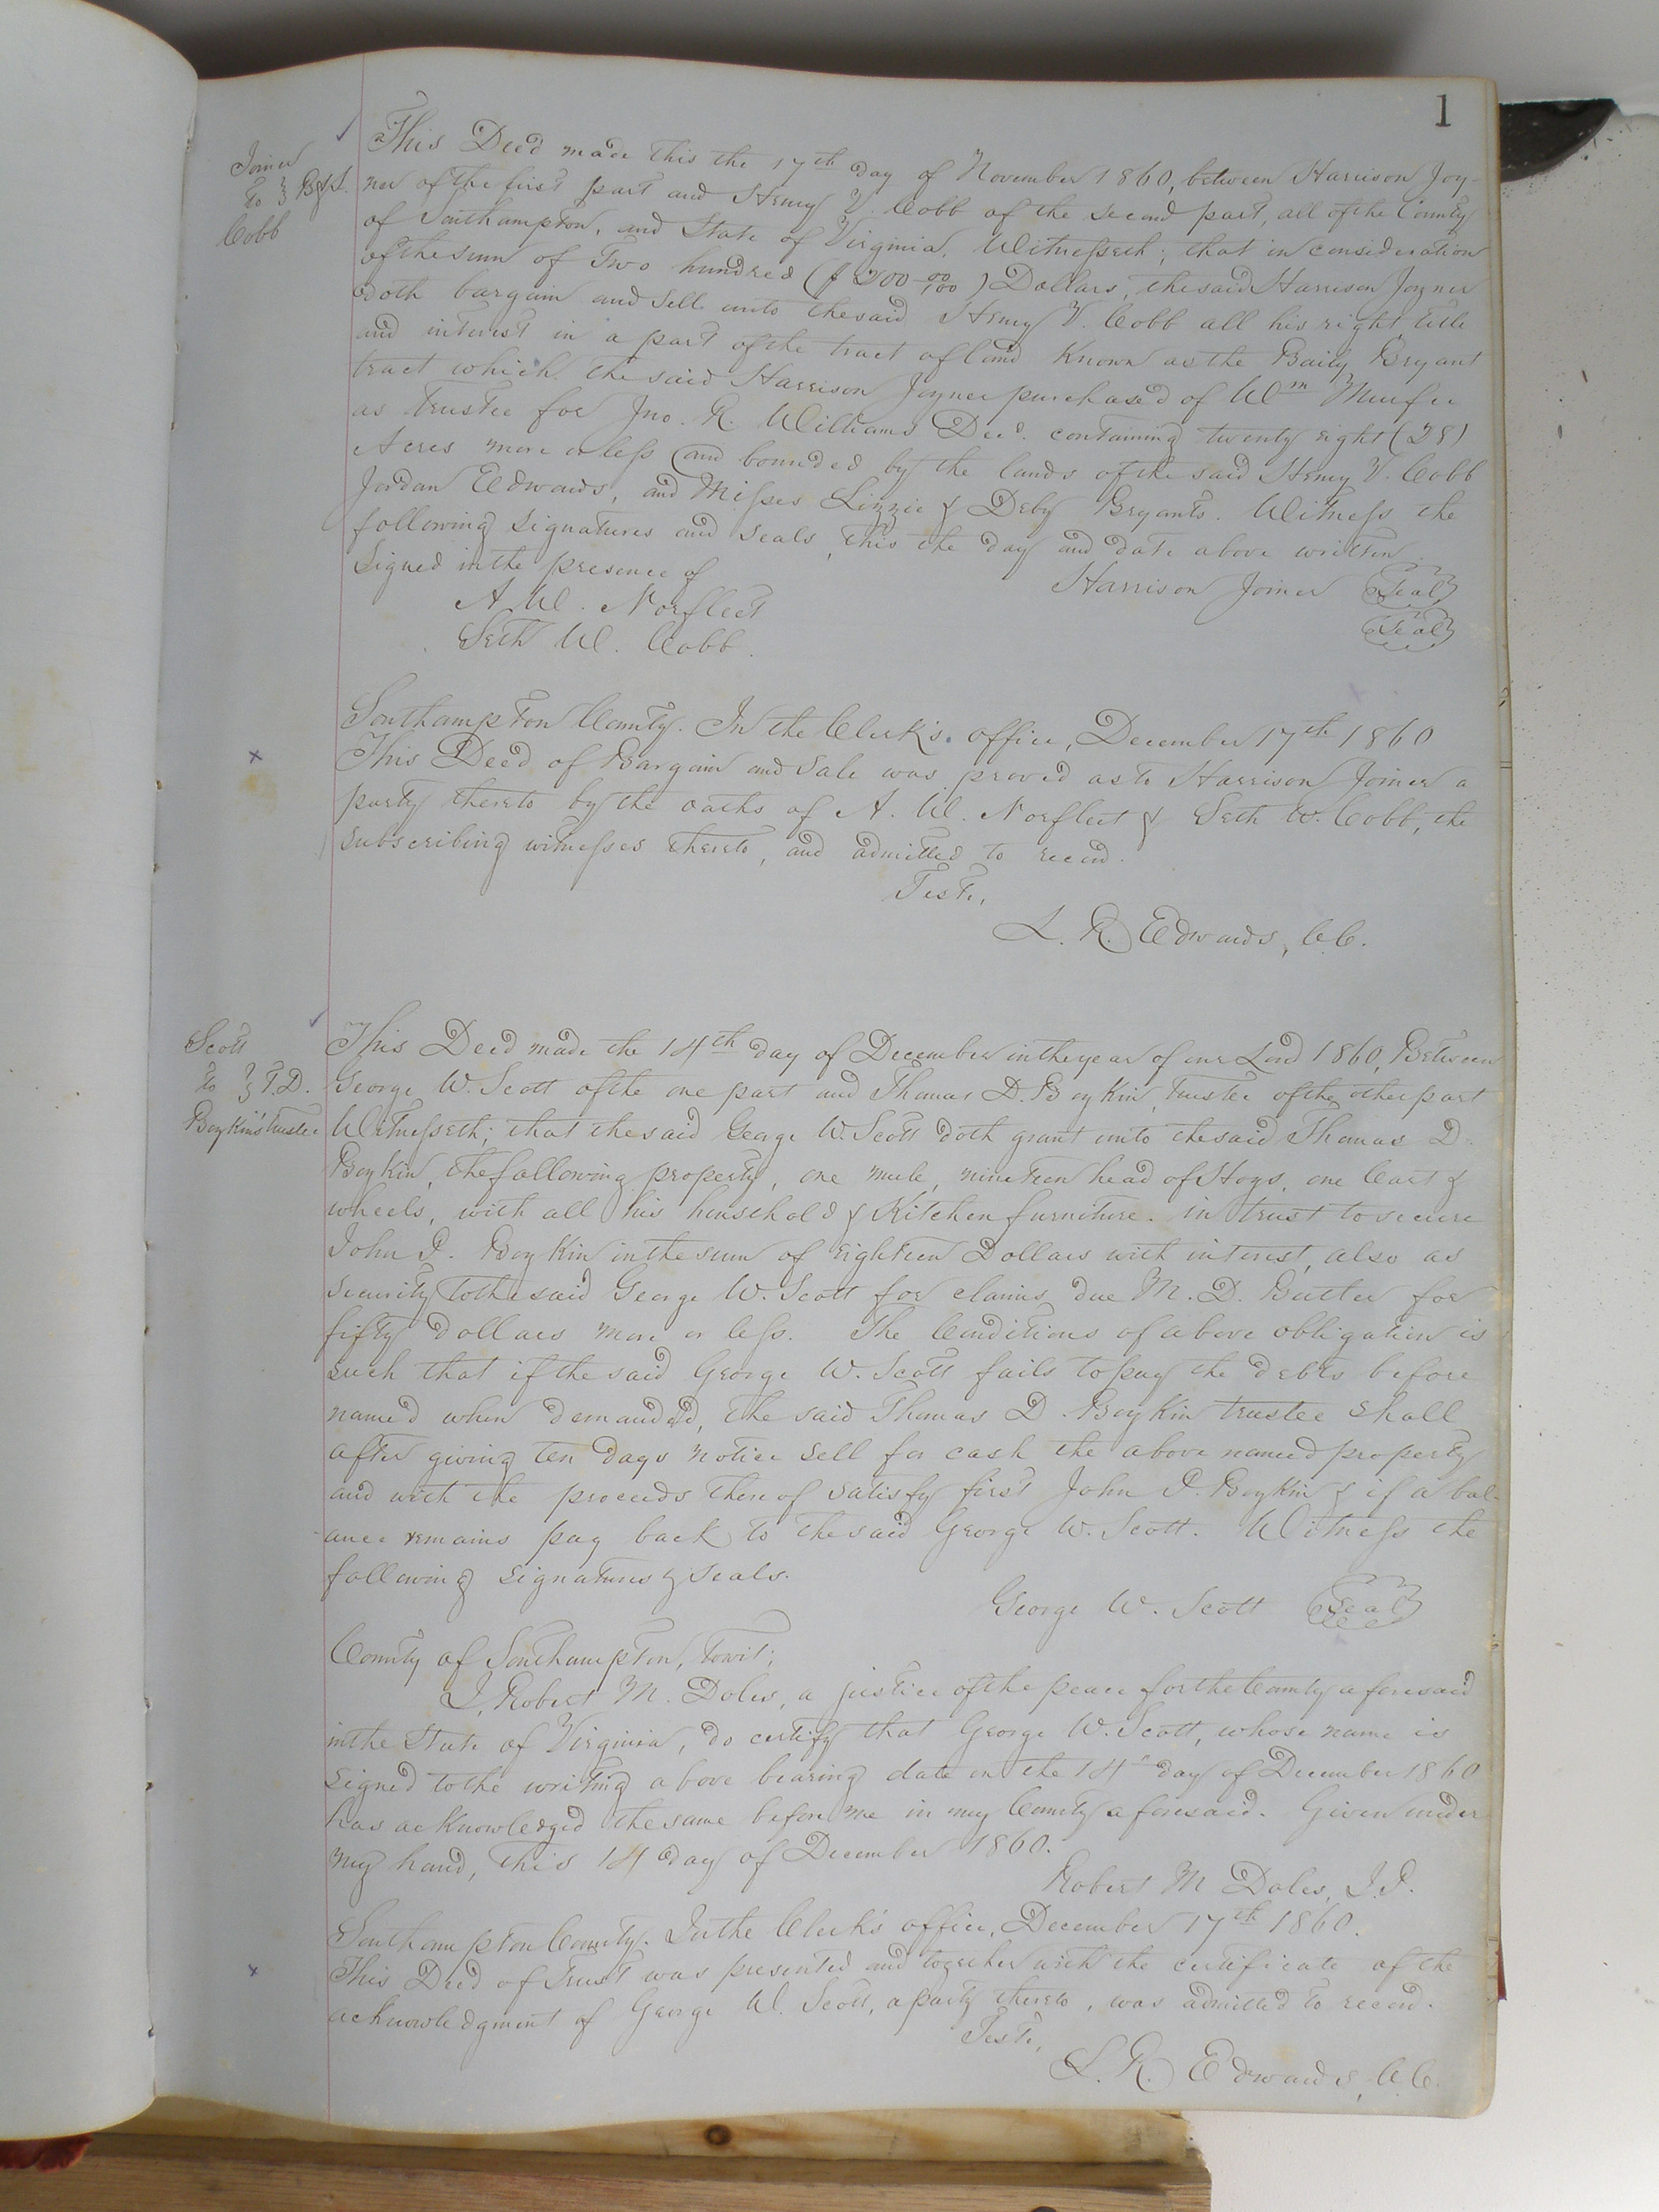 1
Joiner
to } B&S.
Cobb
This Deed made this the 17th day of November 1860, between Harrison Joy-
ner of the first part and Henry V. Cobb of the second part, all of the County
of Southampton, and State of Virginia. Witnesseth; that in consideration
of the sum of Two hundred ($200 00/100) Dollars, the said Harrison Joyner
doth bargain and sell unto the said Henry V. Cobb all his right title
and interest in a part of the tract of land Known as the Baily Bryant
tract which the said Harrison Joyner purchased of Wm Murfee
as trustee for Jno. R. Williams Decd. containing twenty eight (28)
Acres more or less and bounded by the lands of the said Henry V. Cobb
Jordan Edwards, and Misses Lizzie & Deby Bryants. Witness the
following signatures and seals, this the day and date above written.
Signed in the presence of
Harrison Joiner Seal
A. W. Norfleet
Seal
Seth W. Cobb.
Southampton County. In the Clerk's office, December 17th 1860
This Deed of Bargain and Sale was proved as to Harrison Joiner a
party thereto by the oaths of A. W. Norfleet & Seth W. Cobb, the
subscribing witnesses thereto, and admitted to record.
Teste,
L. R. Edwards, C.C.
Scott
to } T.D.
Boykin's trustee
This Deed made the 14th day of December in the year of our Lord 1860, Between
George W. Scott of the one part and Thomas D. Boykin, trustee of the other part
Witnesseth; that the said George W. Scott doth grant unto the said Thomas D.
Boykin, the following property, one mule, nineteen head of Hogs, one Cart &
wheels, with all his household & Kitchen furniture. in trust to secure
John P. Boykin in the sum of eighteen Dollars with interest, also as
security to the said George W. Scott for claims due M. D. Butler for
fifty dollars more or less. The Conditions of above obligation is
such that if the said George W. Scott fails to pay the debts before
named when demanded, the said Thomas D. Boykin trustee shall
after giving ten days notice sell for cash the above named property
and with the proceeds thereof satisfy first John P. Boykin & if a bal-
ance remains pay back to the said George W. Scott. Witness the
following signatures & seals.
George W. Scott Seal
County of Southampton, Towit;
I, Robert M. Doles, a justice of the peace for the County aforesaid
in the State of Virginia, do certify that George W. Scott, whose name is
signed to the writing above bearing date on the 14" day of December 1860
has acknowledged the same before me in my County aforesaid. Given under
my hand, this 14 day of December 1860.
Robert M Doles, J.P.
Southampton County. In the Clerk's office, December 17th 1860.
This Deed of Trust was presented and together with the certificate of the
acknowledgment of George W. Scott, a party thereto, was admitted to record.
Teste,
L. R. Edwards, C.C.